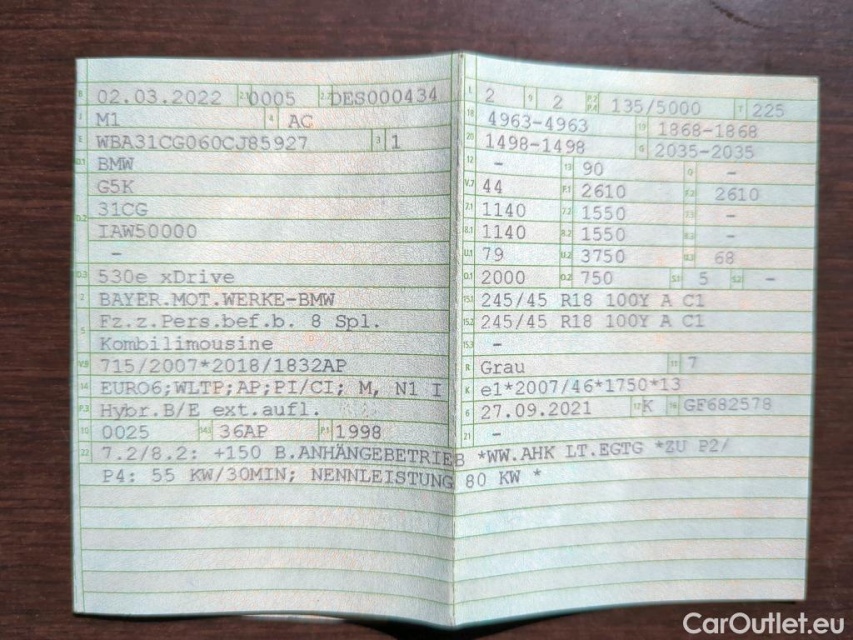 B 02.03.2022 2.1 0005 2.2 DES000434
J M1 4 AC
E WBA31CG060CJ85927 3 1
D.1 BMW
G5K
D.2 31CG
IAW50000
–
D.3 530e xDrive
2 BAYER.MOT.WERKE-BMW
5 Fz.z.Pers.bef.b. 8 Spl.
Kombilimousine
V.9 715/2007*2018/1832AP
14 EURO6;WLTP;AP;PI/CI; M, N1 I
P.3 Hybr.B/E ext.aufl.
10 0025 14.1 36AP P.1 1998
L 2 9 2 P.2 P.4 135/5000 T 225
18 4963-4963 19 1868-1868
20 1498-1498 G 2035-2035
12 – 13 90 Q –
V.7 44 F.1 2610 F.2 2610
7.1 1140 7.2 1550 7.3 –
8.1 1140 8.2 1550 8.3 –
U.1 79 U.2 3750 U.3 68
O.1 2000 O.2 750 S.1 5 S.2 –
15.1 245/45 R18 100Y A C1
15.2 245/45 R18 100Y A C1
15.3 –
R Grau 11 7
K e1*2007/46*1750*13
6 27.09.2021 17 K 16 GF682578
21 –
22 7.2/8.2: +150 B.ANHÄNGEBETRIEB *WW.AHK LT.EGTG *ZU P2/
P4: 55 KW/30MIN; NENNLEISTUNG 80 KW *
CarOutlet.eu